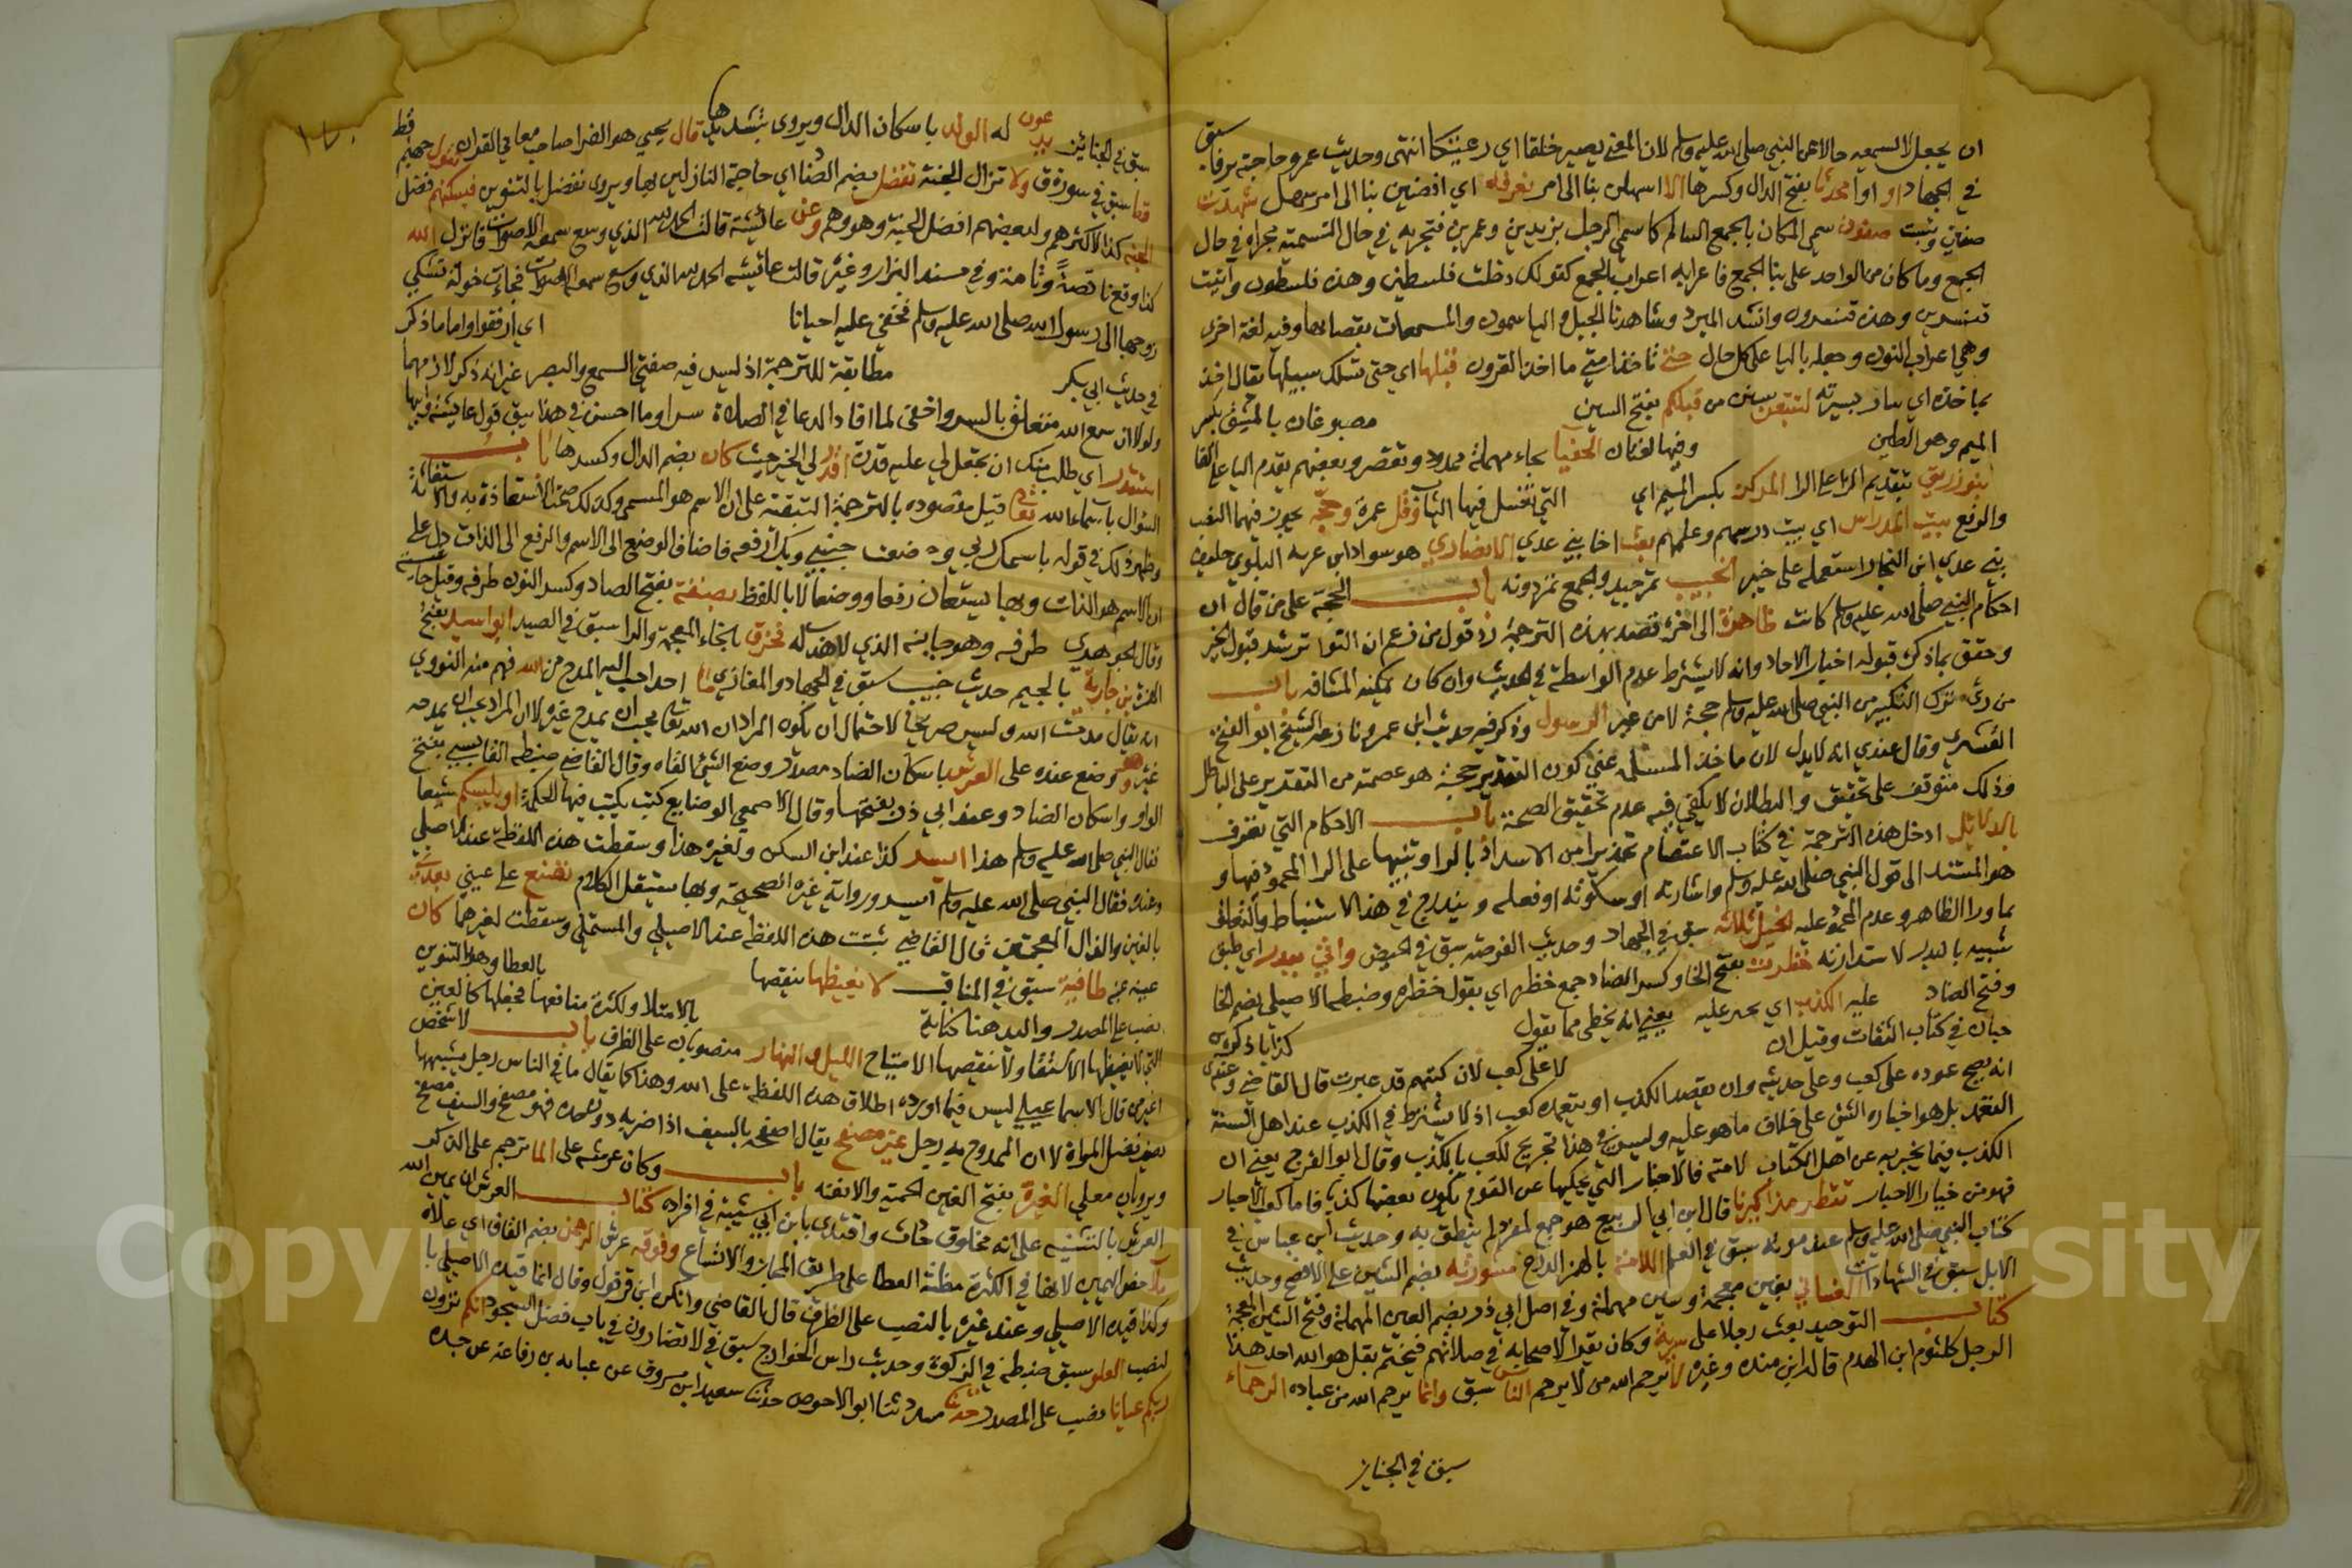 ان يجعل السميعه حالا من النبي صلى الله عليه وسلم لان المغني يصير خلقا اي رعينكا انتهى وحديث عمر وحاجبه يرفا سبق
في الجهاد او اوا محدثا بفتح الدال وكسرها الا اسهلن بنا الى امر نعرفه اي افضين بنا الى امر سهل شهدت
صفين وبئست صفون سمي المكان بالجمع السالم كما سمي الرجل بزيدين وعمرين فتجريه في حال التسمية مجراه في حال
الجمع وما كان من الواحد على بنا الجمع فاعرابه اعراب الجمع كقولك دخلت فلسطين وهذه فلسطون واتيت
قنسرين وهذه قنسرون وانشد المبرد وشاهدنا الجل والياسمون والمسمعات بقصابها وفيه لغة اخرى
وهي اعراب النون وجعله باليا على كل حال حتى تاخذ امتي ما اخذ القرون قبلها اي حتى تسلك سبيلها يقال اخذ
بماخذه اي سار بسيرته لتتبعن سنن من قبلكم بفتح السين مصبوغان بالمشق بكسر
الميم وهو الطين وفيها لغتان الحفيا بحاء مهملة ممدود وتقصر وبعضهم يقدم اليا على الفا
بنو زريق بتقديم الزا على الرا المركن بكسر الميم اي التي تغسل فيها الثياب وقل عمرة وحجة يجوز فيهما النصب
والرفع بيت المدراس اي بيت درسهم وعلمهم بعث اخا بني عدي الانصاري هو سواد ابن غزيه البلوي حليف
بني عدي ابن النجار استعمله على خيبر الجنيب تمر جيد والجمع تمر دونه باب الحجة على من قال ان
احكام النبي صلى الله عليه وسلم كانت ظاهرة الى اخره قصد بهذه الترجمة رد قول من زعم ان التواتر شرط قبول الخبر
وحقق بماذكره قبوله اخبار الاحاد وانه لا يشترط عدم الواسطة في الحديث وان كان يمكنه المشافه باب
من رءى ترك النكير من النبي صلى الله عليه وسلم حجة لا من غير الرسول وذكر فيه حديث ابن عمر ونازعه الشيخ ابو الفتح
القشيري وقال عندي انه لا يدل لان ماخذ المسئله عني كون التقرير حجة هو عصمته من التقرير على الباطل
وذلك متوقف على تحقيق والبطلان لا يكفي فيه عدم تحقيق الصحة باب الاحكام التي تعرف
بالدلائل ادخل هذه الترجمة في كتاب الاعتصام تحذيرا من الاستبداد بالرا وتنبيها على الرا المحمود فيها و
هو المستند الى قول النبي صلى الله عليه وسلم واشارته او سكوته او فعله ويندرج في هذا الاستنباط والتعلق
بما ورا الظاهر وعدم الجمود عليه الخيل ثلاثه سبق في الجهاد وحديث الفرصه سبق في الحيض واتي ببدر اي طبق
شبيه بالبدر لاستدارته خضرات بفتح الخا وكسر الضاد جمع خضره اي بقول خضره وضبطه الاصيلي بضم الخا
وفتح الضاد عليه الكذب اي يعني انه يخطى مما يقول كذبا ذكره
حبان في كتاب الثقات وقيل ان لا على كعب لان كتبهم قد غيرت قال القاضي وعندي
انه يصح عوده على كعب وعلى حديثه وان يقصد الكذب او يتعمده كعب اذ لا يشترط في الكذب عند اهل السنة
التعمد بل هو اخباره الشيء على خلاف ما هو عليه وليس في هذا تجريح لكعب بالكذب وقال ابو الفرج يعني ان
الكذب فيما يخبر به عن اهل الكتاب لا منه فالاخبار التي يحكيها عن القوم يكون بعضها كذبا فاما كعب الاحبار
فهو من خيار الاحبار تقطر مذاكيرنا قال ابن ابي الربيع هو جمع لمفرد لم ينطق به وحديث ابن عباس في
كتاب النبي صلى الله عليه وسلم عند موته سبق في العلم اللامة بالهمز الدرع مشورته بضم الشين على الافصح وحديث
الابل سبق في الشهادات الغساني بغين معجمة وسين مهملة وفي اصل ابي ذر بضم العين المهملة وفتح الشين المعجمة
كتاب التوحيد بعث رجلا على سرية وكان يقرا لاصحابه في صلاتهم فيختم بقل هو الله احد هذا
الرجل كلثوم ابن الهدم قاله ابن منده وغيره لا يرحم الله من لا يرحم الناس سبق وانما يرحم الله من عباده الرحماء
سبق في الجنايز
سبق في الجنائز يدعون له الولد باسكان الدال ويروى بتشديدها قال يحيي هو الفرا صاحب معاني القران تقول جهنم قط
قط سبق في سورة ق ولا تزال الجنة تفضل بضم الضا اي حاجة النازلين بها ويروى تفضل بالتنوين فيسكنهم فضل
الجنه كذا لاكثرهم ولبعضهم افضل الجنة وهو وهم وعن عائشة قالت الحمد لله الذي وسع سمعه الاصوات فانزل الله
كذا وقع نا قصة وثامنة وفي مسند البزار وغيره قالت عائشه الحمد لله الذي وسع سمعه الاصوات فجاءت خولة تشكي
زوجها الى رسول الله صلى الله عليه وسلم فخفي عليه احيانا اي ارفقوا واما ما ذكر
في حديث ابي بكر مطابقة للترجمة اذ ليس فيه صفتي السمع والبصر غير انه ذكر لازمهما
ولولا ان سمع الله متعلق بالسر واخفى لما افاد الدعا في الصلاة سرا وما احسن في هذا سبق قول عائشة فيها
استقدر اي طلب منك ان تجعل لي عليه قدرة اقدر لي الخير حيث كان بضم الدال وكسرها باب
السؤال باسماء الله تعالى قيل مقصوده بالترجمة التبيقة على ان الاسم هو المسمى وكذلك صحت الاستعاذة به والاستعانة
وظهر ذلك في قوله باسمك ربي وضعت جنبي وبك ارفعه فاضاف الوضع الى الاسم والرفع الى الذات دل على
ان الاسم هو الذات وبها يستعان رفعا ووضعا لا باللفظ بصنفة بفتح الصاد وكسر النون طرفه وقيل حاشيته
وقال الجوهري طرفه وهو جانبه الذي لا هدب له فخزق بالخاء المعجمة والزا سبق في الصيد ابو اسيد بفتح
الهمزة بن جارية بالجيم حديث خبيب سبق في الجهاد والمغازي ما احد احب اليه المدح من الله فهم منه النووي
انه يقال مدحت الله وليس صريحا لاحتمال ان يكون المراد ان الله تعالى يحب ان يمدح غيره لا ان المراد يحب ان يمدحه
غيره وهو وضع عنده على العرش باسكان الضاد مصدر وضع الشي القاه وقال القاضي ضبطه القابسي بفتح
الواو واسكان الضاد وعند ابي ذر بفتحها وقال الاصمعي الوضايع كتب يكتب فيها الحكمة او يلبسكم شيعا
فقال النبي صلى الله عليه وسلم هذا ايسر كذا عند ابن السكن ولغيره هذا وسقطت هذه اللفظة عند الاصيلي
وعنده فقال النبي صلى الله عليه وسلم ايسر ورواية غيره الصحيحة وبها يستقل الكلام تصنع على عيني تغذى
بالغين والذال المعجمتين قال القاضي ثبتت هذه اللفظه عند الاصيلي والمستملي وسقطت لغيرهما كان
عينه عنبة طافية سبق في المناقب لا يغيظها ينقصها بالعطا وهذا التنوين
نصب على المصدر واليد هنا كناية بالامتلا ولكثرة منافعها فجعلها كالعين
التي لا يغيظها الاستقا ولا ينقصها الامتياح الليل والنهار منصوبان على الظرف باب لا شخص
اغير من قال الاسماعيلي ليس فيما اورده اطلاق هذه اللفظة على الله وهذا كما يقال ما في الناس رجل يشبهها
يعني تفضيل المراة لا ان الممدوح به رجل غير مصفح يقال اصفحه بالسيف اذا ضربه دون حده فهو مصفح والسيف مصفح
ويرويان معا لي الغيرة بفتح الغين الحمية والانفه باب وكان عرشه على الما ترجم على الذكر
العرش بالتنبيه على انه مخلوق حادث واقتدى بابن ابي شيبة في افراده كتاب العرش ان يمين الله
ملا خص اليمين لانها في الكثرة مظنة العطا على طريق المجاز والاتساع وفوقه عرش الرحمن بضم القاف اي علاه
وكذا قيده الاصيلي وعند غيره بالنصب على الظرف قال القاضي وانكره ابن قرقول وقال انما قيده الاصيلي با
لنصب العلو سبق ضبطه في الزكوة وحديث راس الخوارج سبق في لا تضارون في باب فضل السجود انكم ترون
ربكم عيانا نصب على المصدر حدثنا مسدد ثنا ابو الاحوص حدثنا سعيد ابن مسروق عن عبايه بن رفاعة عن جده